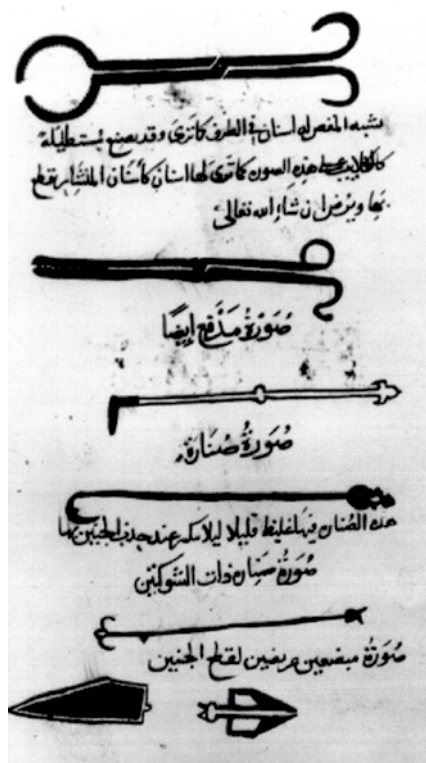 يشبه المقص له أسنان في الطرف كما ترى وقد يصنع مستطيلة
كالكلاليب على هذه الصورة كما ترى لها أسنان كأسنان المنشار يقطع
بها ويرض إن شاء الله تعالى
صُورَةُ مِدْفَعٍ إيضًا
صُورَةُ صُنارَةٍ
هذه الصنارة فيها غلظ قليلا ليلا تنكسر عند جذب الجنين بها
صُورَةُ صنارة ذات الشوكتين
صُورَةُ مبضعين عريضين لقطع الجنين